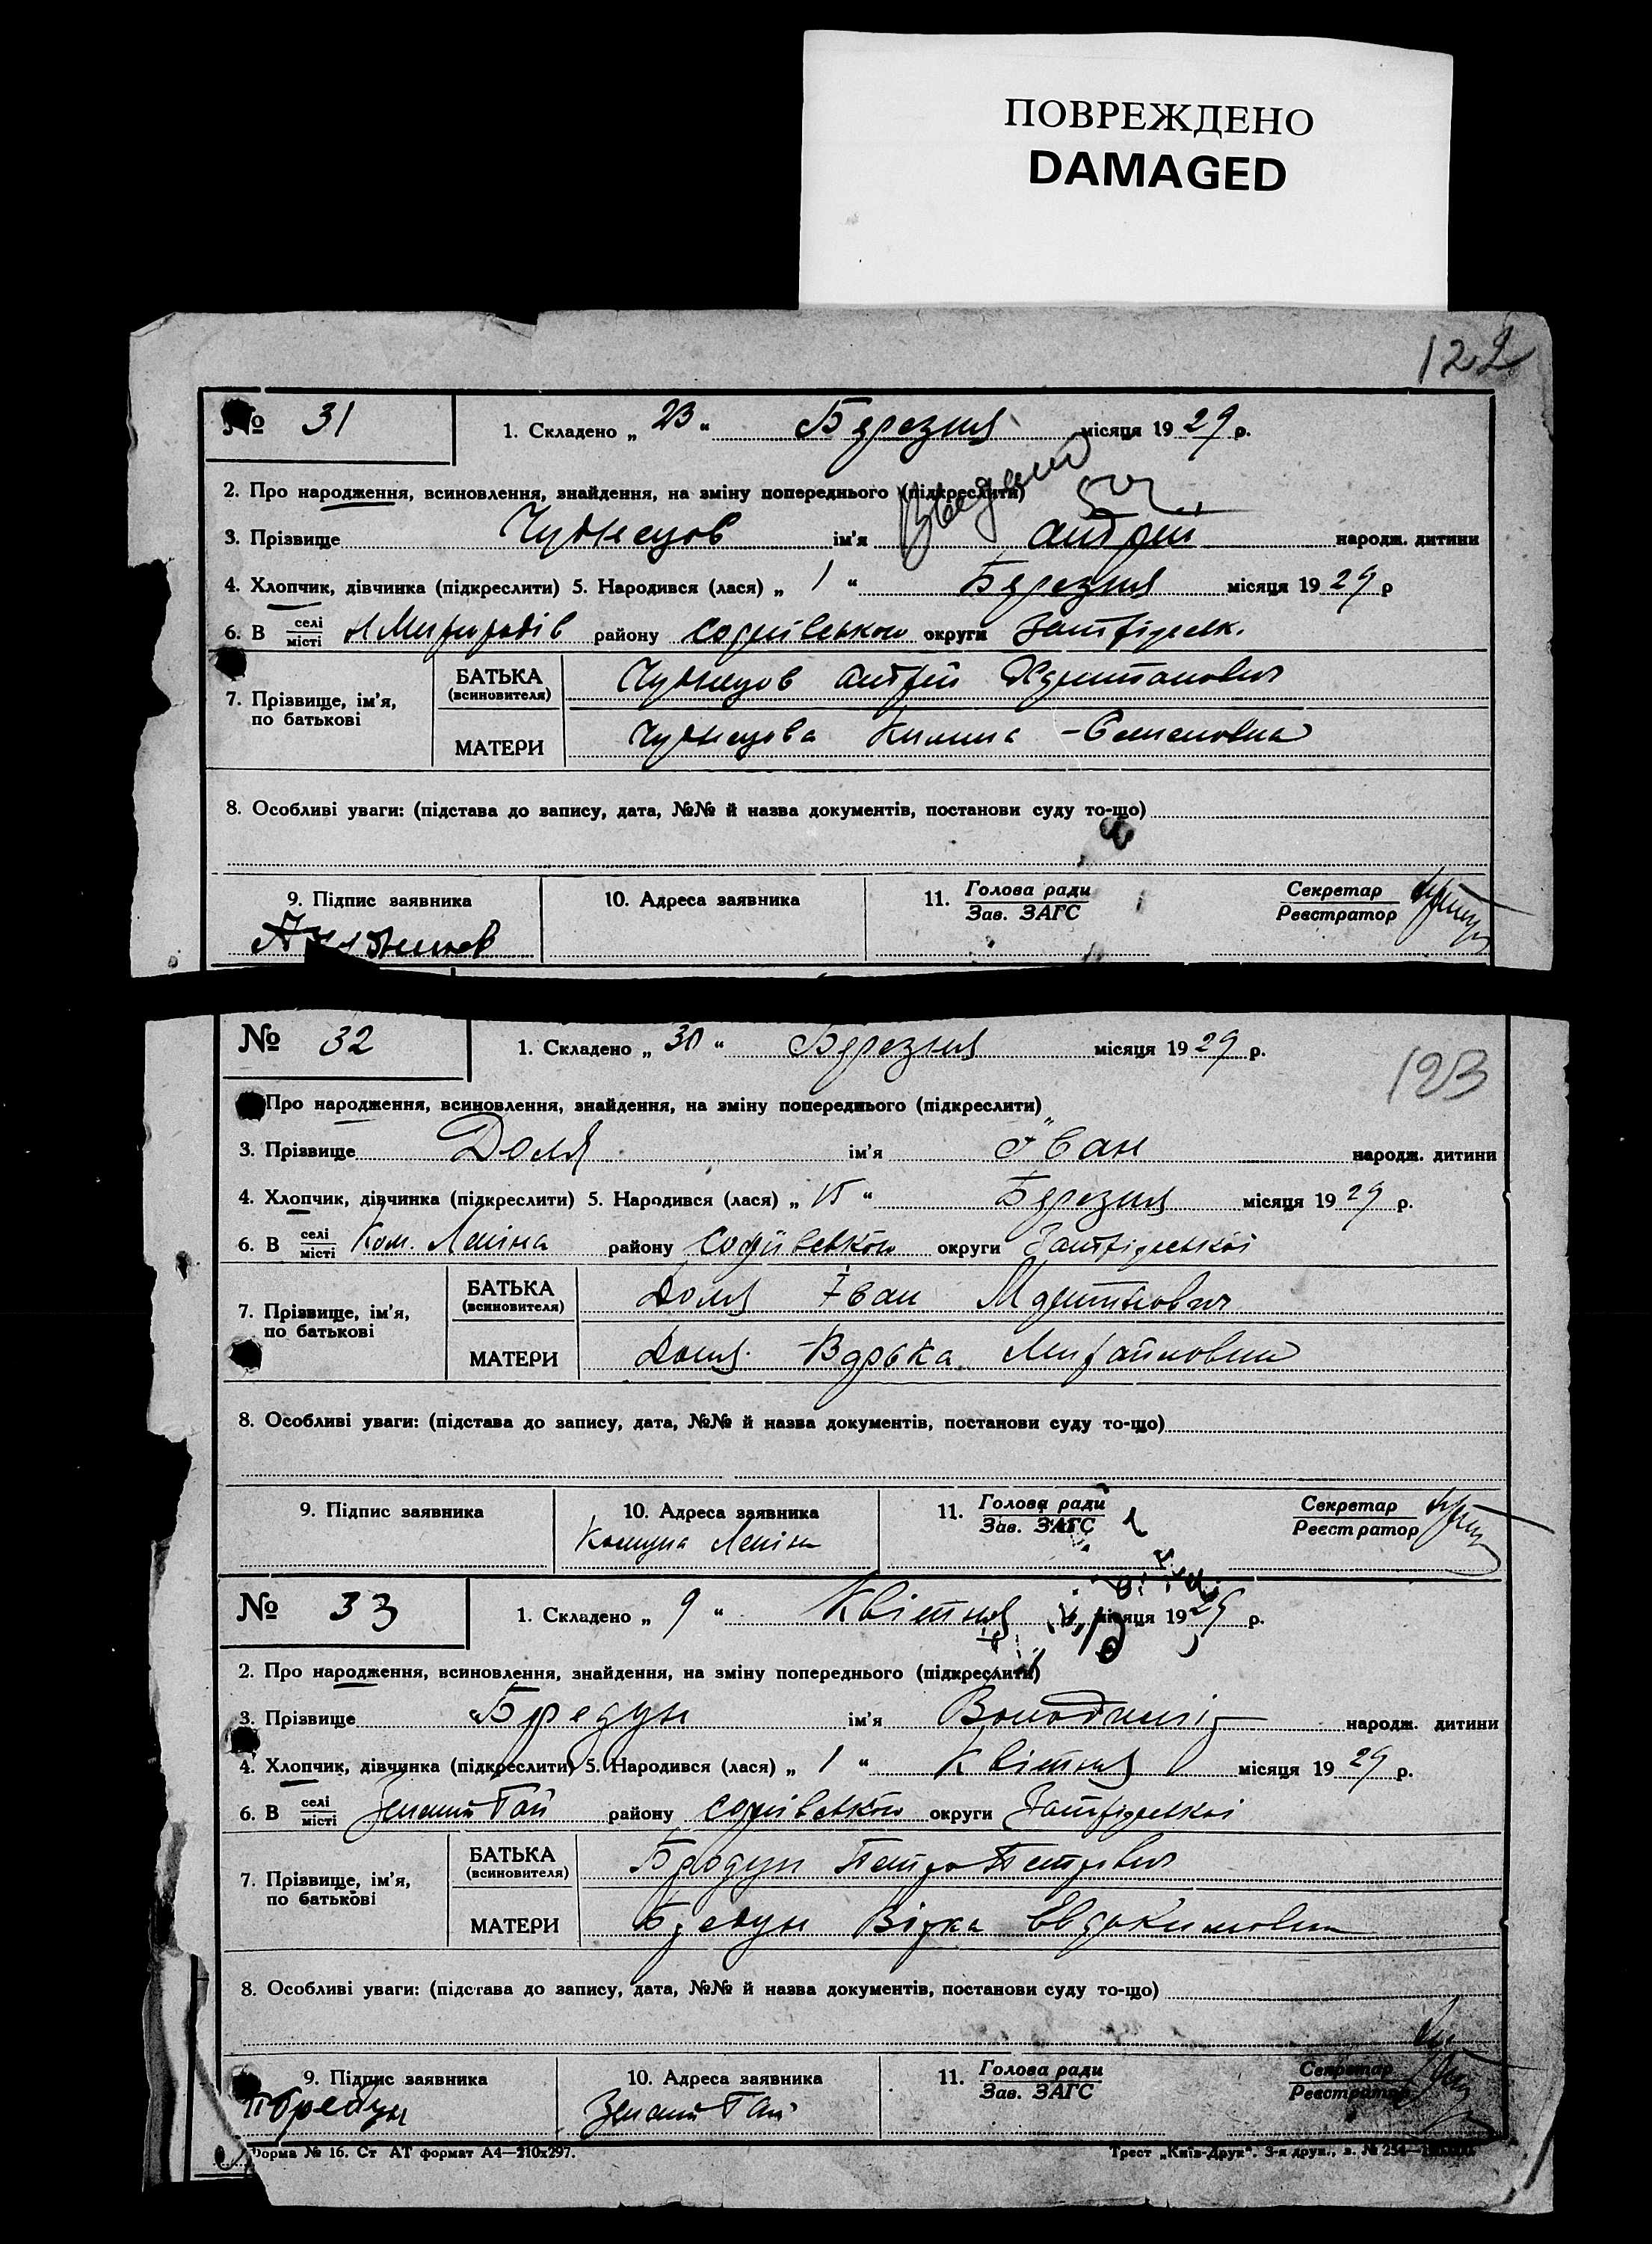 ПОВРЕЖДЕНО
DAMAGED
122
№ 31 1. Складено „ 23 “ Березня місяця 1929 р.
2. Про народження, всиновлення, знайдення, на зміну попереднього (підкреслити)
3. Прізвище ім'я Андрій народж. дитини
4. Хлопчик, дівчинка (підкреслити) 5. Народився (лася) „ 1 “ Березня місяця 1929 р
6. В селі/місті району Софіївського округи
7. Прізвище, ім'я, по батькові
БАТЬКА (всиновителя) Андрій
МАТЕРИ Килина Семеновна
8. Особливі уваги: (підстава до запису, дата, №№ й назва документів, постанови суду то-що)
9. Підпис заявника 10. Адреса заявника 11. Голова ради/Зав. ЗАГС Секретар/Реєстратор
№ 32 1. Складено „ 30 “ Березня місяця 1929 р.
123
Про народження, всиновлення, знайдення, на зміну попереднього (підкреслити)
3. Прізвище Доля ім'я Іван народж. дитини
4. Хлопчик, дівчинка (підкреслити) 5. Народився (лася) „ 15 “ Березня місяця 1929 р.
6. В селі/місті Ком. Леніна району Софіївського округи
7. Прізвище, ім'я, по батькові
БАТЬКА (всиновителя) Доля Іван
МАТЕРИ Доля Варька
8. Особливі уваги: (підстава до запису, дата, №№ й назва документів, постанови суду то-що)
9. Підпис заявника 10. Адреса заявника 11. Голова ради/Зав. ЗАГС Секретар/Реєстратор
Комуна Леніна
№ 33 1. Складено „ 9 “ Квітня місяця 1929 р.
2. Про народження, всиновлення, знайдення, на зміну попереднього (підкреслити)
3. Прізвище Бредун ім'я Володимір народж. дитини
4. Хлопчик, дівчинка (підкреслити) 5. Народився (лася) „ 1 “ Квітня місяця 1929 р.
6. В селі/місті Зелений Гай району Софіївського округи
7. Прізвище, ім'я, по батькові
БАТЬКА (всиновителя) Бредун Петро Петрович
МАТЕРИ Бредун Вірка Евдокимовна
8. Особливі уваги: (підстава до запису, дата, №№ й назва документів, постанови суду то-що)
9. Підпис заявника 10. Адреса заявника 11. Голова ради/Зав. ЗАГС Секретар/Реєстратор
П Бредун Зелений Гай
Форма № 16. Ст АТ формат А4—210х297. Трест „Київ-Друк“. 3-я друк., з. № 254